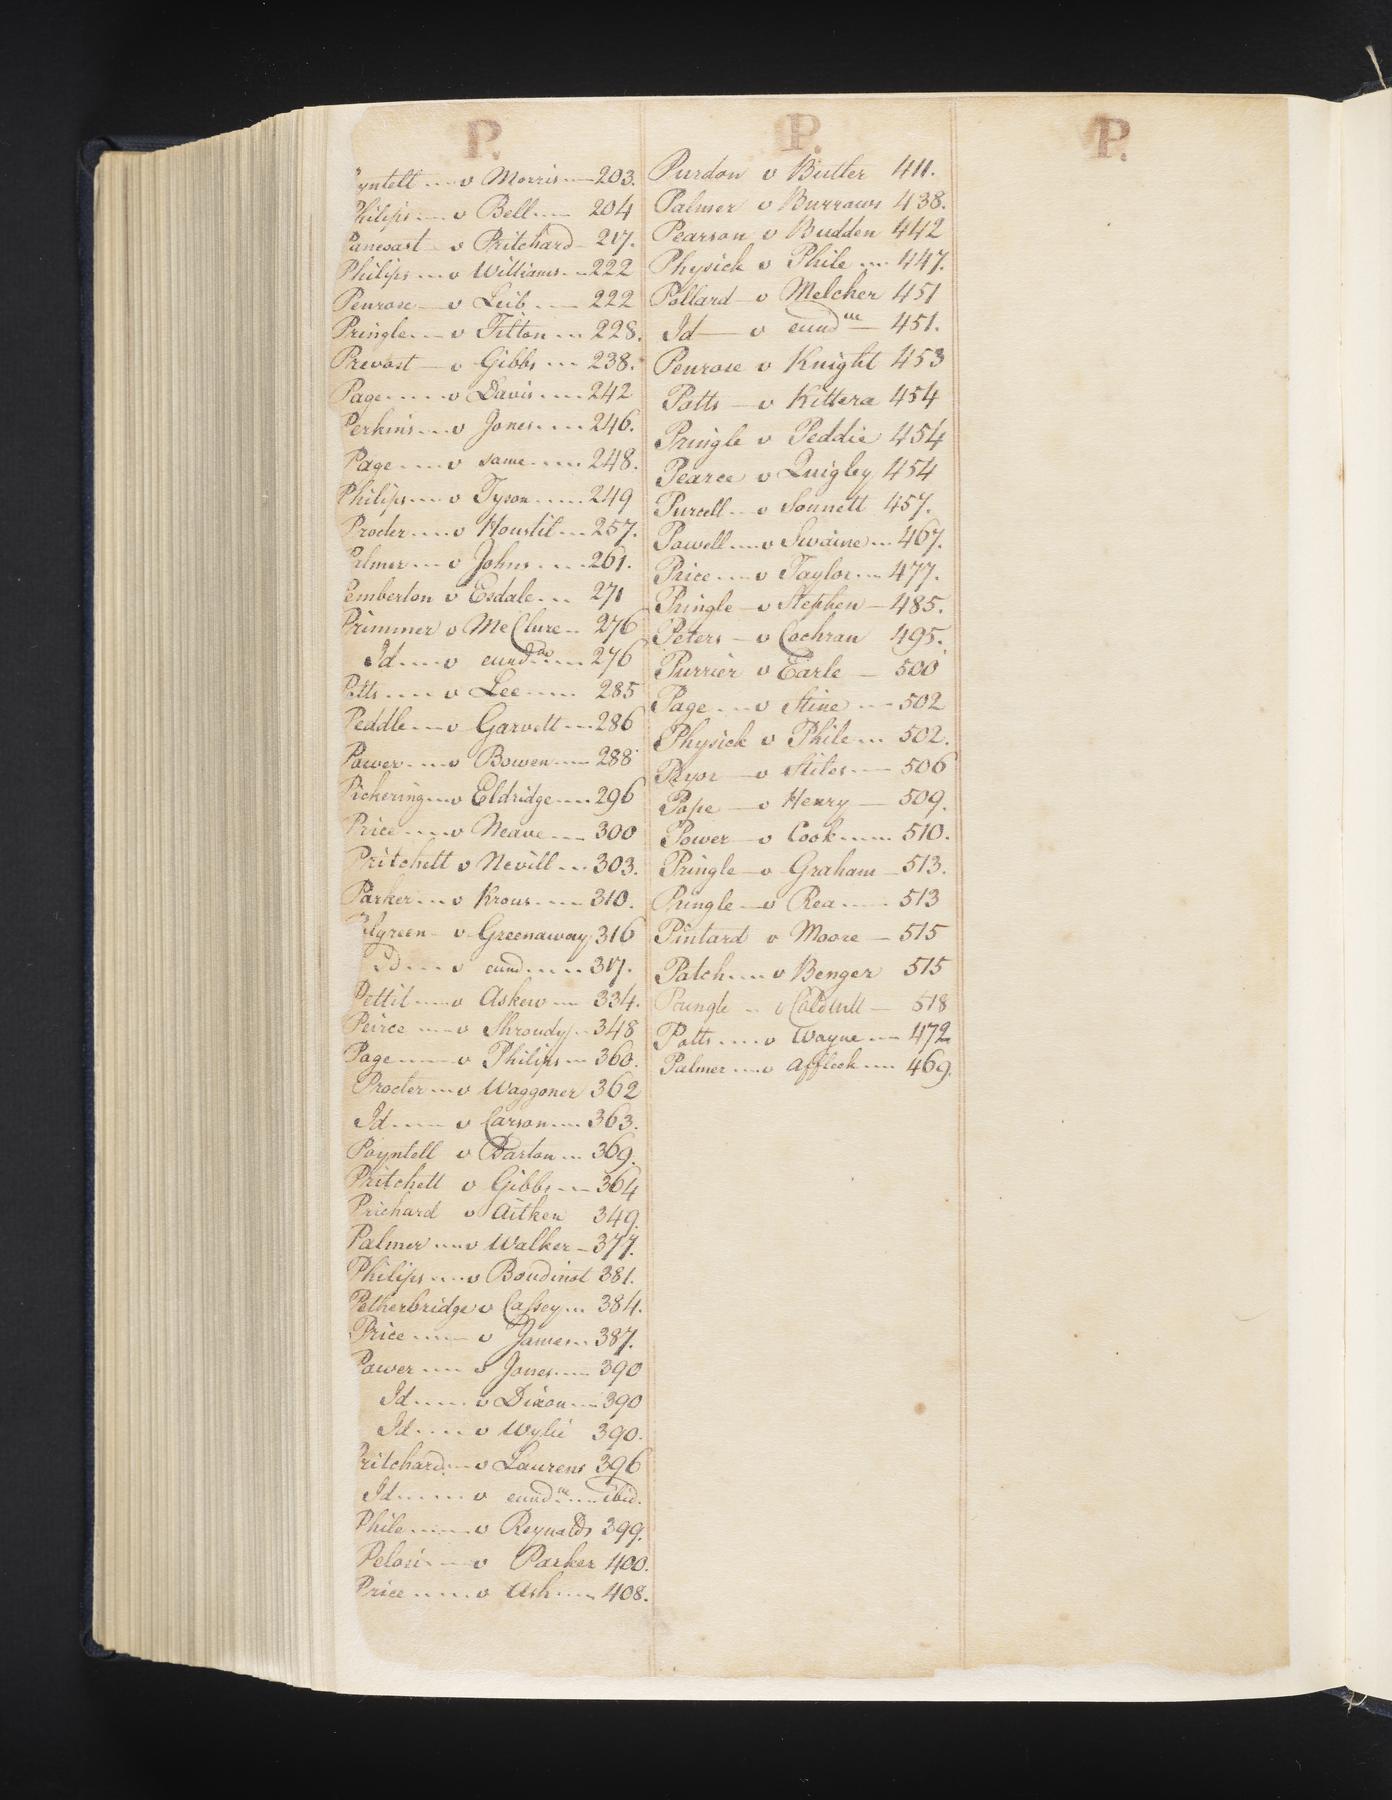 P.
yntell .... v Morris .... 203.
Philips .... v Bell .... 204
Pancoast v Pritchard 217.
Philips ... v Williams ... 222
Penrose — v Leib .... 222
Pringle ... v Tilton ... 228.
Prevost — v Gibbs ... 238.
Page ..... v Davis .... 242
Perkins ... v Jones .... 246.
Page .... v same ..... 248.
Philips .... v Tyson ..... 249
Procter .... v Houstil ... 257.
Palmer ... v Johns .... 261.
Pemberton v Esdale ... 271
Primmer v McClure .. 276
Id .... v eund ..... 276
Potts .... v Lee ..... 285
Peddle ... v Garvett ... 286
Power .... v Bowen .... 288
Pickering ... v Eldridge .... 296
Price .... v Neave .... 300
Pritchett v Nevill ... 303.
Parker ... v Krous .... 310.
lgreen — v Greenaway 316
Id .... v eund ..... 317.
Pettit .... v Askew ... 334.
Peirce .... v Shroudy ... 348
Page ..... v Philips ... 360.
Procter ... v Waggoner 362
Id ..... v Carson .... 363.
Poyntell v Barton ... 369.
Pritchett v Gibbs ... 364
Prichard v Aitken 349.
Palmer .... v Walker — 377.
Philips .... v Boudinot 381.
Petherbridge v Cassey ... 384.
Price ..... v James ... 387.
Power .... v Jones .... 390
Id ..... v Dixon ... 390
Id .... v Wylie 390.
Pritchard ... v Laurens 396
Id ...... v eundm .... ibid.
Phile ..... v Reynalds 399.
Pelosi .... v Parker 400.
Price ..... v Ash .... 408.
P.
Purdon v Butler 411.
Palmer v Burrows 438.
Pearson v Budden 442
Physick v Phile .... 447.
Pollard — v Melcher 451
Id — v eundm — 451.
Penrose v Knight 453
Potts — v Kittera 454
Pringle v Peddie 454
Pearce v Quigley 454
Purcell ... v Sonnett 457.
Powell .... v Swaine ... 467.
Price .... v Taylor ... 477.
Pringle — v Stephen — 485.
Peters — v Cochran 495.
Purrier v Earle — 500
Page ... v Stine ... 502
Physick v Phile ... 502.
Pryor — v Stiles — 506
Pope — v Henry — 509.
Power — v Cook ..... 510.
Pringle — v Graham — 513.
Pringle — v Rea .... 513
Pintard v Moore — 515
Patch .... v Benger 515
Pringle .. v Caldwell — 518
Potts .... v Wayne ... 472
Palmer .... v Affleck .... 469.
P.